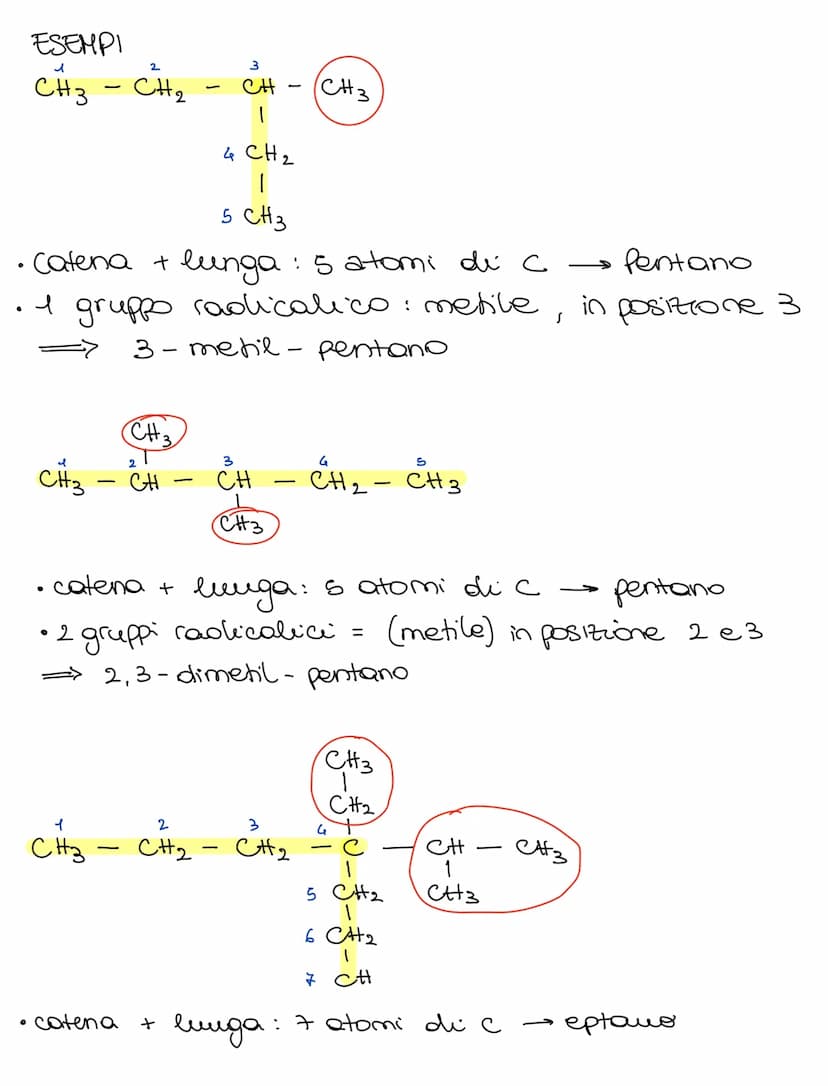 ESEMPI
1 2 3
CH3 - CH2 - CH - CH3
4 CH2
5 CH3
• catena + lunga : 5 atomi di C → Pentano
• 1 gruppo radicalico : metile , in posizione 3
⟹ 3 - metil - pentano
CH3
1 2 3 4 5
CH3 - CH - CH - CH2 - CH3
CH3
• catena + lunga : 5 atomi di C → pentano
• 2 gruppi radicalici = (metile) in posizione 2 e 3
⟹ 2,3 - dimetil - pentano
CH3
CH2
1 2 3 4
CH3 - CH2 - CH2 - C - CH - CH3
5 CH2 CH3
6 CH2
7 CH
• catena + lunga : 7 atomi di C → eptano